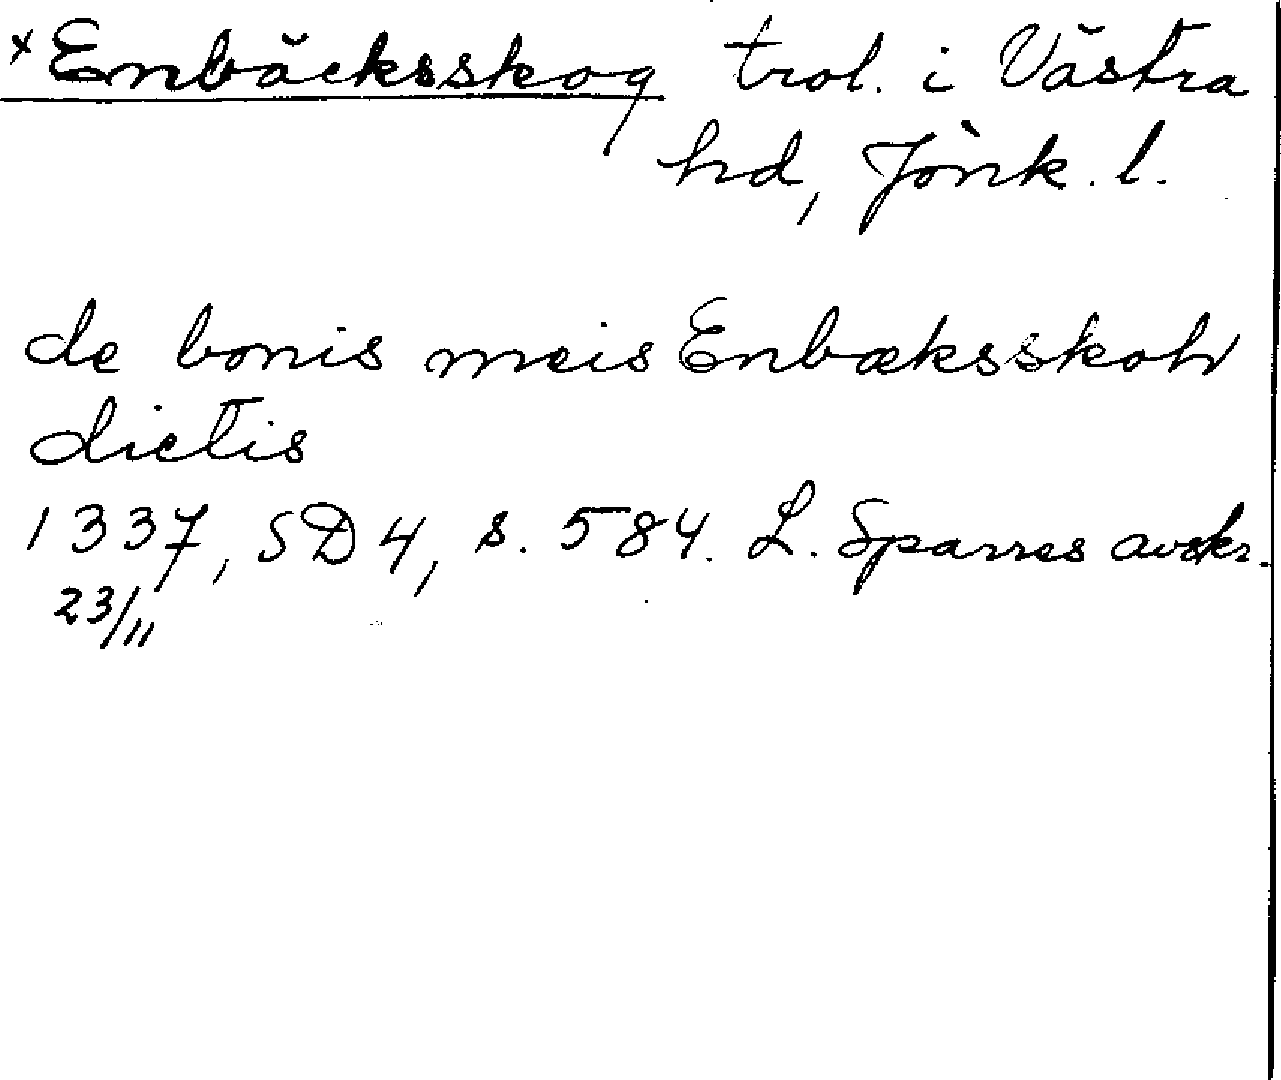 ×Enbäcksskog trol. i Västra
hd, Jönk. l.
de bonis meis Enbæksskoh
dictis
1337, SD 4, s. 584. L. Sparres avskr.
23/11